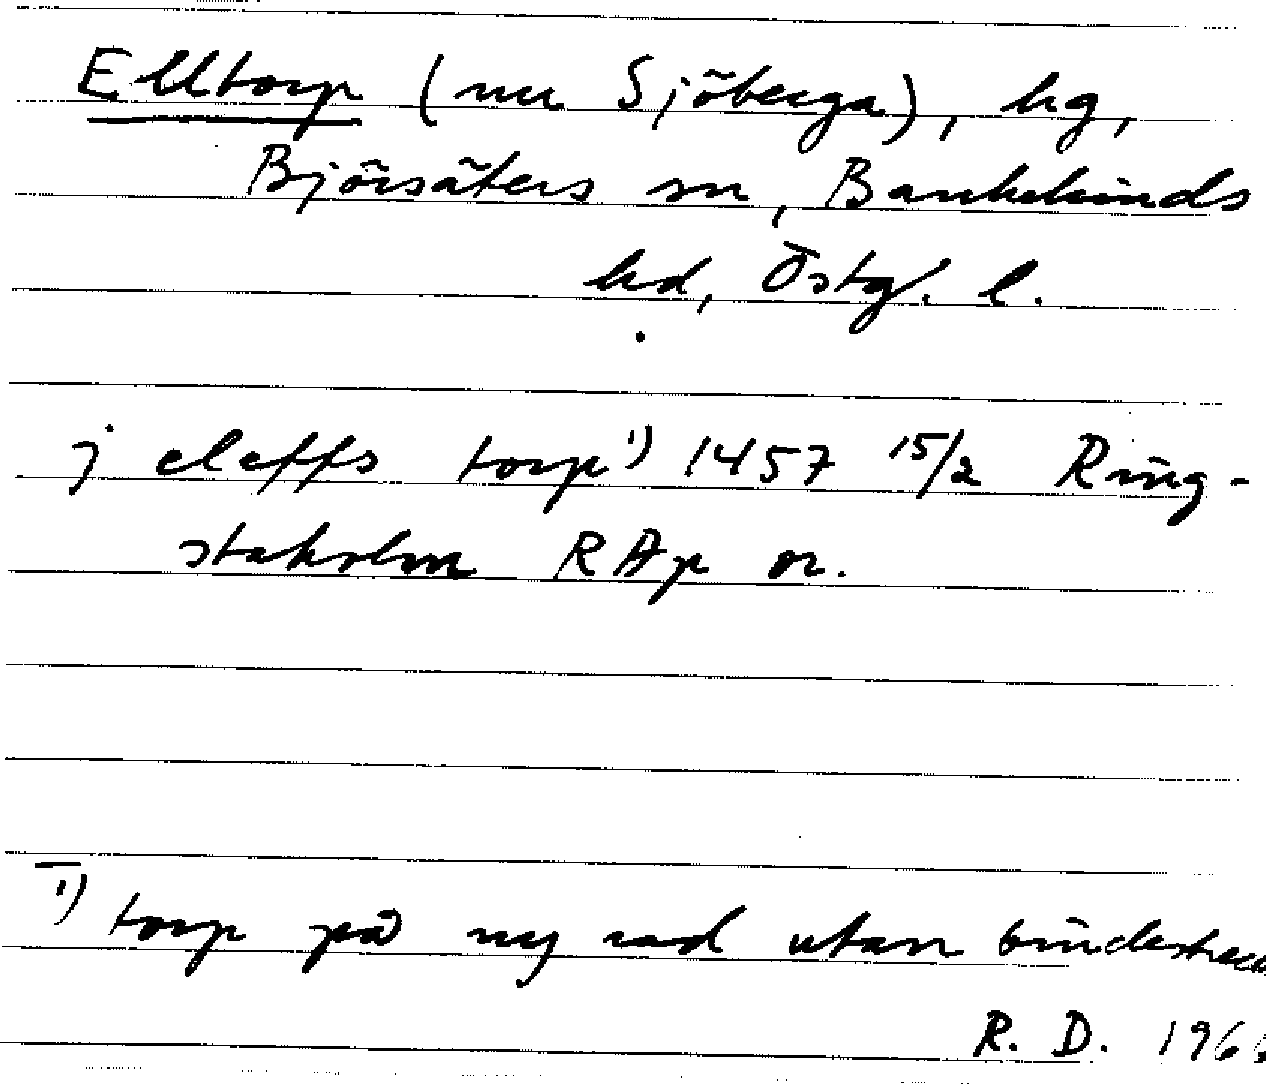 Elltorp (nu Sjöberga), hg,
Björsäters sn, Bankekinds
hd, Östg. l.
j eleffs torp¹⁾ 1457 15/2 Ring-
staholm RAp or.
¹⁾ torp på ny rad utan bindestreck
R. D. 196